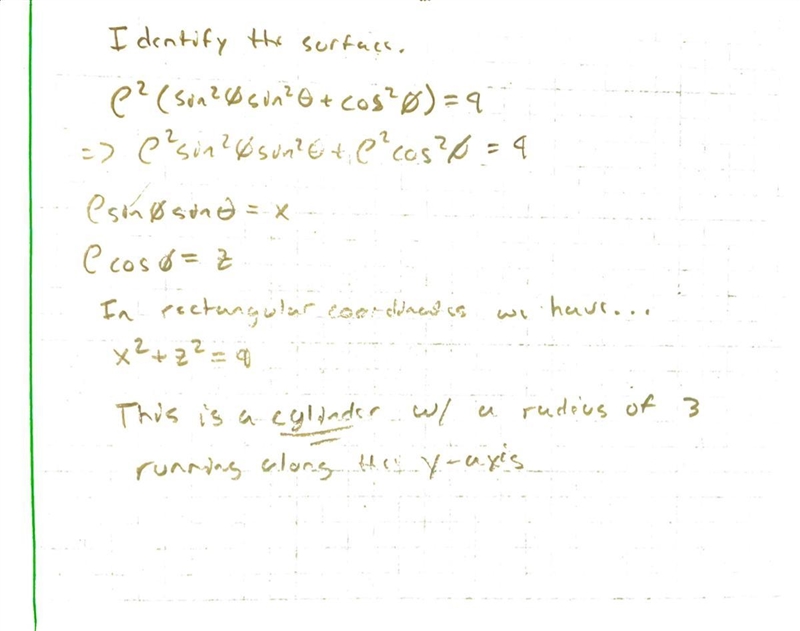 Identify the surface.
ρ²(sin²φsin²θ + cos²φ) = 9
=> ρ²sin²φsin²θ + ρ²cos²φ = 9
ρsinφsinθ = x
ρcosφ = z
In rectangular coordinates we have...
x² + z² = 9
This is a cylinder w/ a radius of 3
running along the y-axis